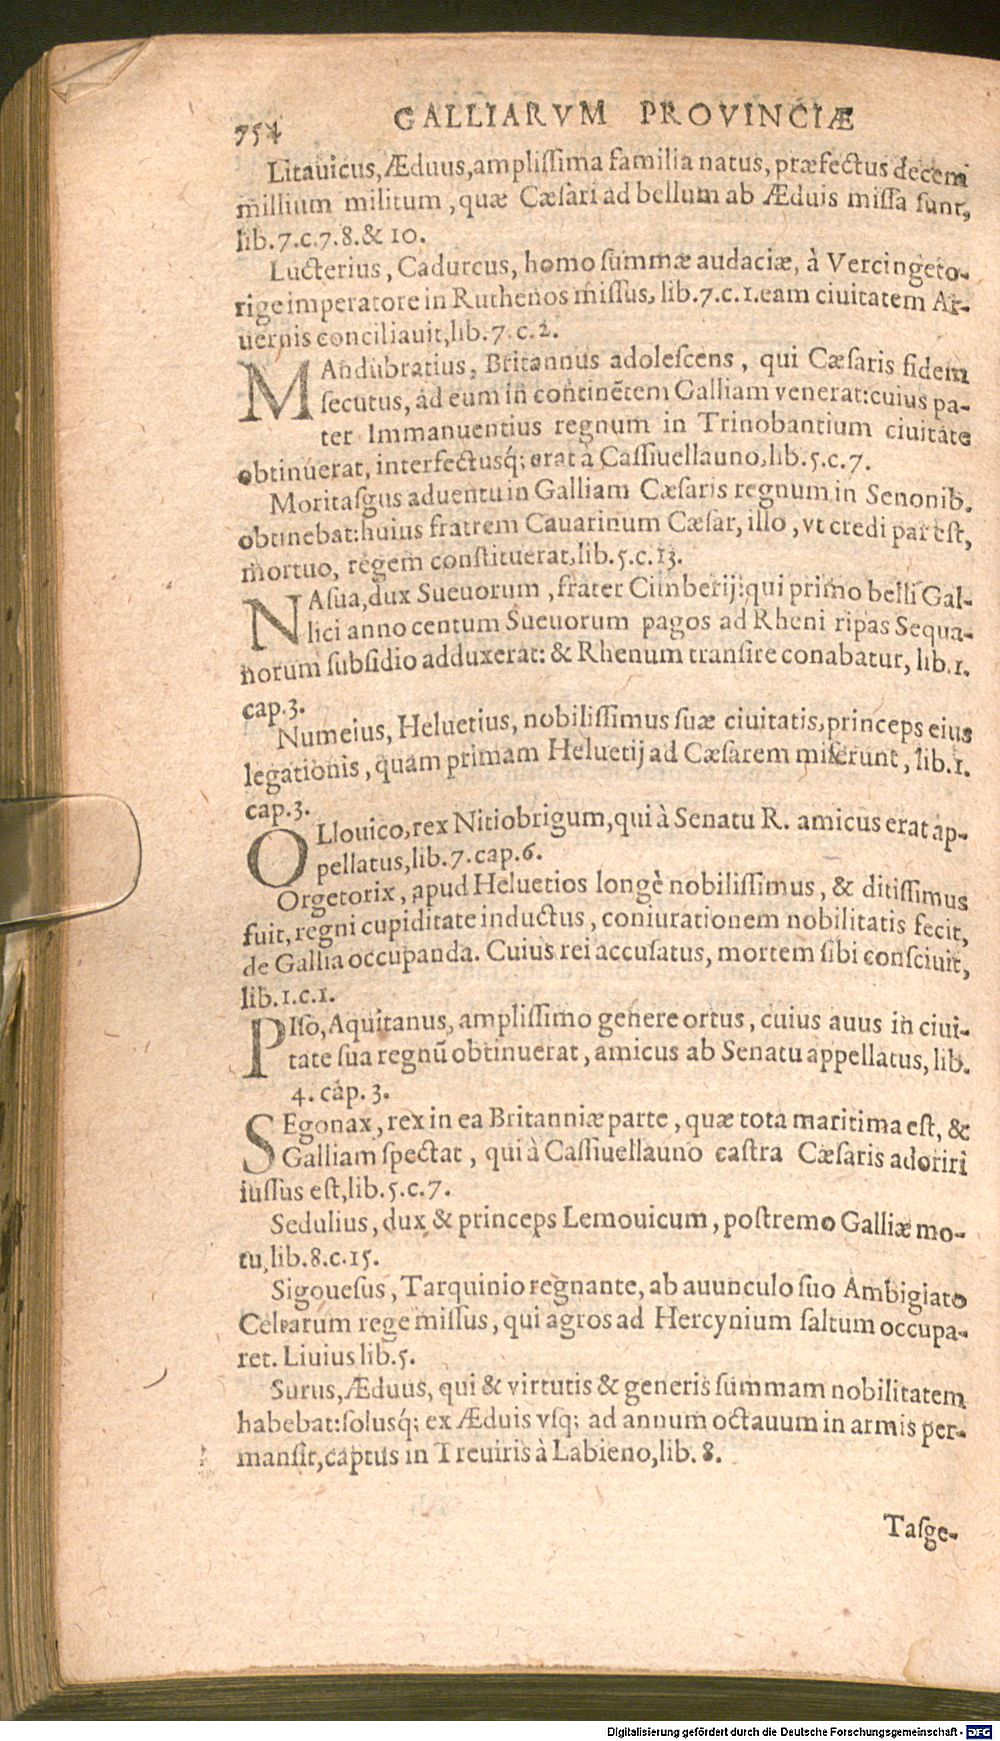 754
GALLIARVM PROVINCIÆ
Litauicus, Æduus, ampliſſima familia natus, præfectus decem
millium militum, quæ Cæſari ad bellum ab Æduis miſſa ſunt,
lib.7.c.7.8.& 10.
Lucterius, Cadurcus, homo ſummæ audaciæ, à Vercingeto-
rige imperatore in Ruthenos miſſus, lib.7.c.1.eam ciuitatem Ar-
uernis conciliauit, lib.7.c.2.
MAndubratius, Britannus adoleſcens, qui Cæſaris fidem
ſecutus, ad eum in continẽtem Galliam venerat:cuius pa-
ter Immanuentius regnum in Trinobantium ciuitate
obtinuerat, interfectuſq́; erat à Caſſiuellauno, lib.5.c.7.
Moritaſgus aduentu in Galliam Cæſaris regnum in Senonib.
obtinebat:huius fratrem Cauarinum Cæſar, illo, vt credi par eſt,
mortuo, regem conſtituerat, lib.5.c.13.
NAſua, dux Sueuorum, frater Cimberij:qui primo belli Gal-
lici anno centum Sueuorum pagos ad Rheni ripas Sequa-
norum ſubſidio adduxerat: & Rhenum tranſire conabatur, lib.1.
cap.3.
Numeius, Heluetius, nobiliſſimus ſuæ ciuitatis, princeps eius
legationis, quam primam Heluetij ad Cæſarem miſerunt, lib.1.
cap.3.
OLlouico, rex Nitiobrigum, qui à Senatu R. amicus erat ap-
pellatus, lib.7.cap.6.
Orgetorix, apud Heluetios longè nobiliſſimus, & ditiſſimus
fuit, regni cupiditate inductus, coniurationem nobilitatis fecit,
de Gallia occupanda. Cuius rei accuſatus, mortem ſibi conſciuit,
lib.1.c.1.
PIſo, Aquitanus, ampliſſimo genere ortus, cuius auus in ciui-
tate ſua regnũ obtinuerat, amicus ab Senatu appellatus, lib.
4. cap. 3.
SEgonax, rex in ea Britanniæ parte, quæ tota maritima eſt, &
Galliam ſpectat, qui à Caſſiuellauno caſtra Cæſaris adoriri
iuſſus eſt, lib.5.c.7.
Sedulius, dux & princeps Lemouicum, poſtremo Galliæ mo-
tu, lib.8.c.15.
Sigoueſus, Tarquinio regnante, ab auunculo ſuo Ambigiato
Celtarum rege miſſus, qui agros ad Hercynium ſaltum occupa-
ret. Liuius lib.5.
Surus, Æduus, qui & virtutis & generis ſummam nobilitatem
habebat:ſoluſq́; ex Æduis vſq; ad annum octauum in armis per-
manſit, captus in Treuiris à Labieno, lib. 8.
Taſge-
Digitalisierung gefördert durch die Deutsche Forschungsgemeinschaft - DFG